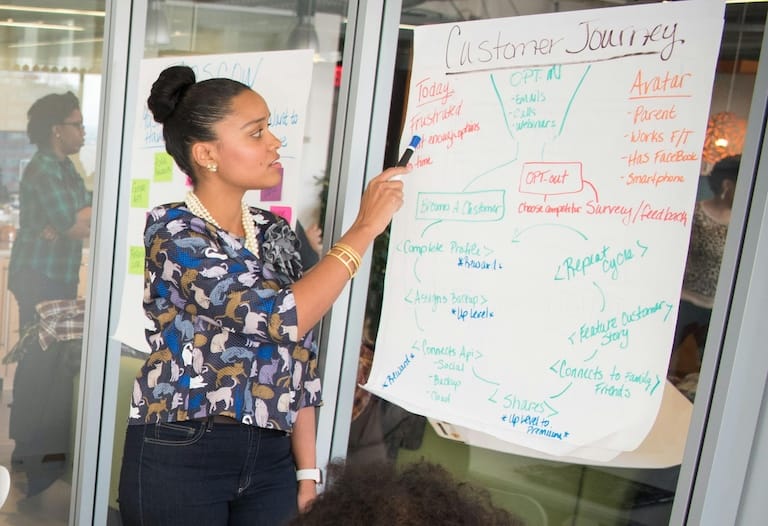 Customer Journey
Today
Frustrated
enough options
time
OPT-IN
- Emails
- Calls
- Webinars
Avatar
- Parent
- Works F/T
- Has FaceBook
- Smartphone
OPT-out
Choose competitor Survey/feedback
Become A Customer
<Complete Profile>
*Reward*
<Assigns Backup>
*Up Level*
<Connects Api>
- Social
- Backup
*Reward*
<Shares>
*Up Level to
Premium*
<Connects to Family/
Friends>
<Feature Customer
Story>
<Repeat Cycle>